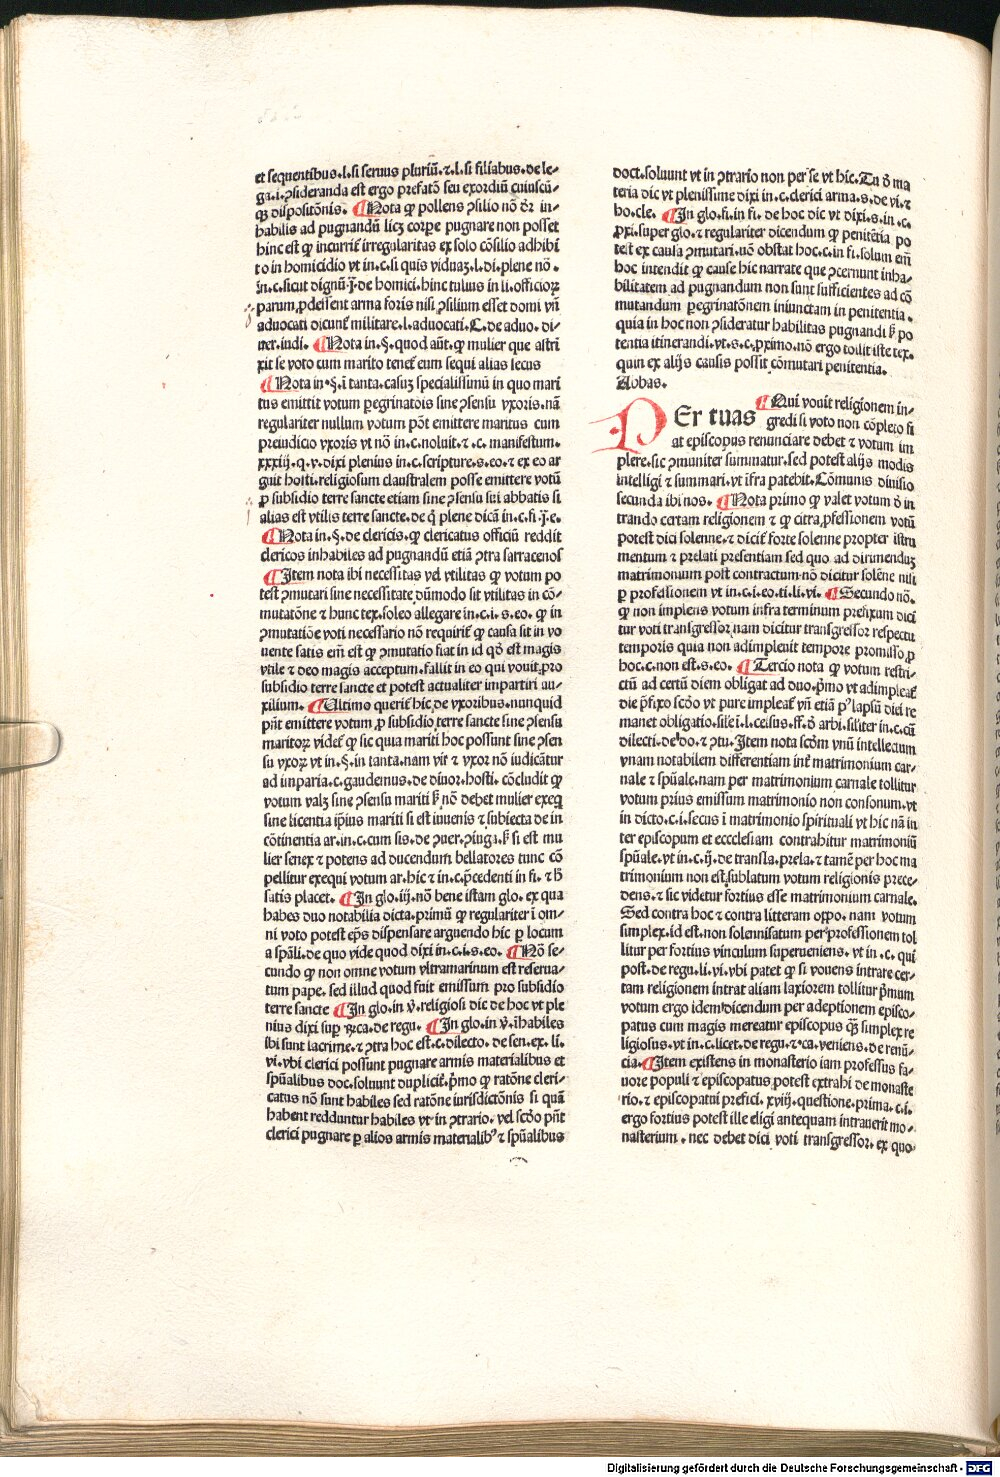 et sequentibus.l.si seruus pluriū.⁊.l.si filiabus.de le-
ga.i.ꝯsideranda est ergo prefatō seu exordiū cuiuscū-
qꝫ dispositōnis. ¶Nota ꝙ pollens ꝯsilio nō dr̄ in-
habilis ad pugnandū licꝫ corpe pugnare non posset
hinc est ꝙ incurrit̄ irregularitas ex solo cōsilio adhibi
to in homicidio vt in.c.si quis viduaꝫ.l.di.plene nō.
in.c.sicut dignū.ꝟ.de homici.hinc tulius in li.officioꝝ
parum ꝓdessent arma foris nisi ꝯsilium esset domi vn̄
aduocati dicunt̄ militare.l.aduocati.C.de aduo.di-
uer.iudi. ¶Nota in.§.quod aūt.ꝙ mulier que astri
xit se voto cum marito tenet̄ eum sequi alias secus
¶Nota in.§.ī tanta.casuꝫ specialissimū in quo mari
tus emittit votum ꝑegrinatōis sine ꝯsensu vxoris.nā
regulariter nullum votum pōt emittere maritus cum
preiudicio vxoris vt nō in.c.noluit.⁊.c.manifestum.
xxxiij.q.v.dixi plenius in.c.scripture.s.eo.⁊ ex eo ar
guit hosti.religiosum claustralem posse emittere votū
ꝓ subsidio terre sancte etiam sine ꝯsensu sui abbatis si
alias est vtilis terre sancte.de q̄ plene dicā in.c.fi.j.e.
¶Nota in.§.de clericis.ꝙ clericatus officiū reddit
clericos inhabiles ad pugnandū etiā ꝯtra sarracenos
¶Item nota ibi necessitas vel vtilitas ꝙ votum po
test ꝯmutari sine necessitate dūmodo sit vtilitas in cō-
mutatōne ⁊ hunc tex.soleo allegare in.c.i.s.eo.ꝙ in
ꝯmutatiōe voti necessario nō requirit̄ ꝙ causa sit in vo
uente satis em̄ est ꝙ ꝯmutatio fiat in id qd̄ est magis
vtile ⁊ deo magis acceptum.fallit in eo qui vouit ꝓ
subsidio terre sancte et potest actualiter impartiri au-
xilium. ¶Ultimo querit̄ hic de vxoribus.nunquid
pn̄t emittere votum ꝓ subsidio terre sancte sine ꝯsensu
maritoꝝ videt̄ ꝙ sic quia mariti hoc possunt sine ꝯsen
su vxoꝝ vt in.§.in tanta.nam vir ⁊ vxor nō iudicātur
ad imparia.c.gaudemus.de diuor.hosti. cōcludit ꝙ
votum valꝫ sine ꝯsensu mariti sꝫ nō debet mulier exeq̄
sine licentia ip̄ius mariti si est iuuenis ⁊ subiecta de in
cōtinentia ar.in.c.cum sis.de ꝯuer.ꝯiuga.sꝫ si est mu
lier senex ⁊ potens ad ducendum bellatores tunc cō
pellitur exequi votum ar.hic ⁊ in.c.p̄cedenti in fi. ⁊ hꝫ
satis placet. ¶In glo.iij.nō bene istam glo.ex qua
habes duo notabilia dicta.primū ꝙ regulariter ī om-
ni voto potest ep̄s dispensare arguendo hic ꝑ locum
a spāli.de quo vide quod dixi in.c.i.s.eo. ¶Nō se-
cundo ꝙ non omne votum vltramarinum est reserua-
tum pape. sed illud quod fuit emissum pro subsidio
terre sancte ¶In glo.in v̄.religiosi dic de hoc vt ple
nius dixi suꝑ ꝶca.de regu. ¶In glo.in v̄.īhabiles
ibi sunt lacrime.⁊ ꝯtra hoc est.c.dilecto.de sen.ex.li.
vi.vbi clerici possunt pugnare armis materialibus et
spūalibus doc.soluunt duplicit̄.p̄mo ꝙ ratōne cleri-
catus nō sunt habiles sed ratōne iurisdictōnis si quā
habent redduntur habiles vt in ꝯtrario.vel scd̄o pn̄t
clerici pugnare ꝑ alios armis materialibꝰ ⁊ spūalibus
doct.soluunt vt in ꝯtrario non per se vt hic.Tu ꝟ ma
teria dic vt plenissime dixi in.c.clerici arma.s.de vi.⁊
ho.cle. ¶In glo.fi.in fi. de hoc dic vt dixi.s.in .c.
ꝓxi.super glo.⁊ regulariter dicendum ꝙ penitētia po
test ex causa ꝯmutari.nō obstat hoc.c.in fi.solum em̄
hoc intendit ꝙ cause hic narrate que ꝯcernunt inha-
bilitatem ad pugnandum non sunt sufficientes ad cō
mutandum ꝑegrinatōnem iniunctam in penitentia.
quia in hoc non ꝯsideratur habilitas pugnandi sꝫ po
tentia itinerandi.vt.s.c.ꝓximo.nō ergo tollit iste tex.
quin ex alijs causis possit cōmutari penitentia.
Abbas.
PEr tuas ¶Qui vouit religionem in-
gredi si voto non cōpleto fi
at episcopus renunciare debet ⁊ votum im
plere.sic ꝯmuniter summatur.sed potest alijs modis
intelligi ⁊ summari.vt īfra patebit.Cōmunis diuisio
secunda ibi nos. ¶Nota primo ꝙ valet votum d̄ in
trando certam religionem ⁊ ꝙ citra ꝓfessionem votū
potest dici solenne.⁊ dicit̄ forte solenne propter istru
mentum ⁊ prelati presentiam sed quo ad dirimenduꝫ
matrimonium post contractum nō dicitur solēne nisi
ꝑ professionem vt in.c.i.eo.ti.li.vi. ¶Secundo nō.
ꝙ non implens votum infra terminum prefixum dici
tur voti transgressor.nam dicitur transgressor respectu
temporis quia non adimpleuit tempore promisso.ꝓ
hoc.c.non est.s.eo. ¶Tercio nota ꝙ votum restri-
ctū ad certū diem obligat ad duo.p̄mo vt adimpleat̄
die p̄fixo scd̄o vt pure impleat̄ vn̄ etiā pꝰ lapsū diei re
manet obligatio.sile ī.l.celsus.ff.d̄ arbi.siliter in.c.cū
dilecti.de do.⁊ ꝯtu.Item nota scd̄m vnū intellectum
vnam notabilem differentiam int̄ matrimonium car-
nale ⁊ spūale.nam per matrimonium carnale tollitur
votum prius emissum matrimonio non consonum.vt
in dicto.c.i.secus ī matrimonio spirituali vt hic nā in
ter episcopum et eccclesiam contrahitur matrimoniū
spūale.vt in.c.ij.de transla.prela.⁊ tamē per hoc ma
trimonium non est sublatum votum religionis prece-
dens.⁊ sic videtur fortius esse matrimonium carnale.
Sed contra hoc ⁊ contra litteram oppo.nam votum
simplex.id est.non solennisatum per professionem tol
litur per fortius vinculum superueniens.vt in .c. qui
post.de regu.li.vi.vbi patet ꝙ si vouens intrare cer-
tam religionem intrat aliam laxiorem tollitur p̄mum
votum ergo idem dicendum per adeptionem episco-
patus cum magis mereatur episcopus qꝫ simplex re
ligiosus.vt in.c.licet.de regu.⁊.ca.veniens.de renū-
cia. ¶Item existens in monasterio iam professus fa-
uore populi ⁊ episcopatus potest extrahi de monaste
rio.⁊ episcopatui prefici.xviij.questione.prima.c.i.
ergo fortius potest ille eligi antequam intrauerit mo-
nasterium.nec debet dici voti transgressor.ex quo
Digitalisierung gefördert durch die Deutsche Forschungsgemeinschaft - DFG